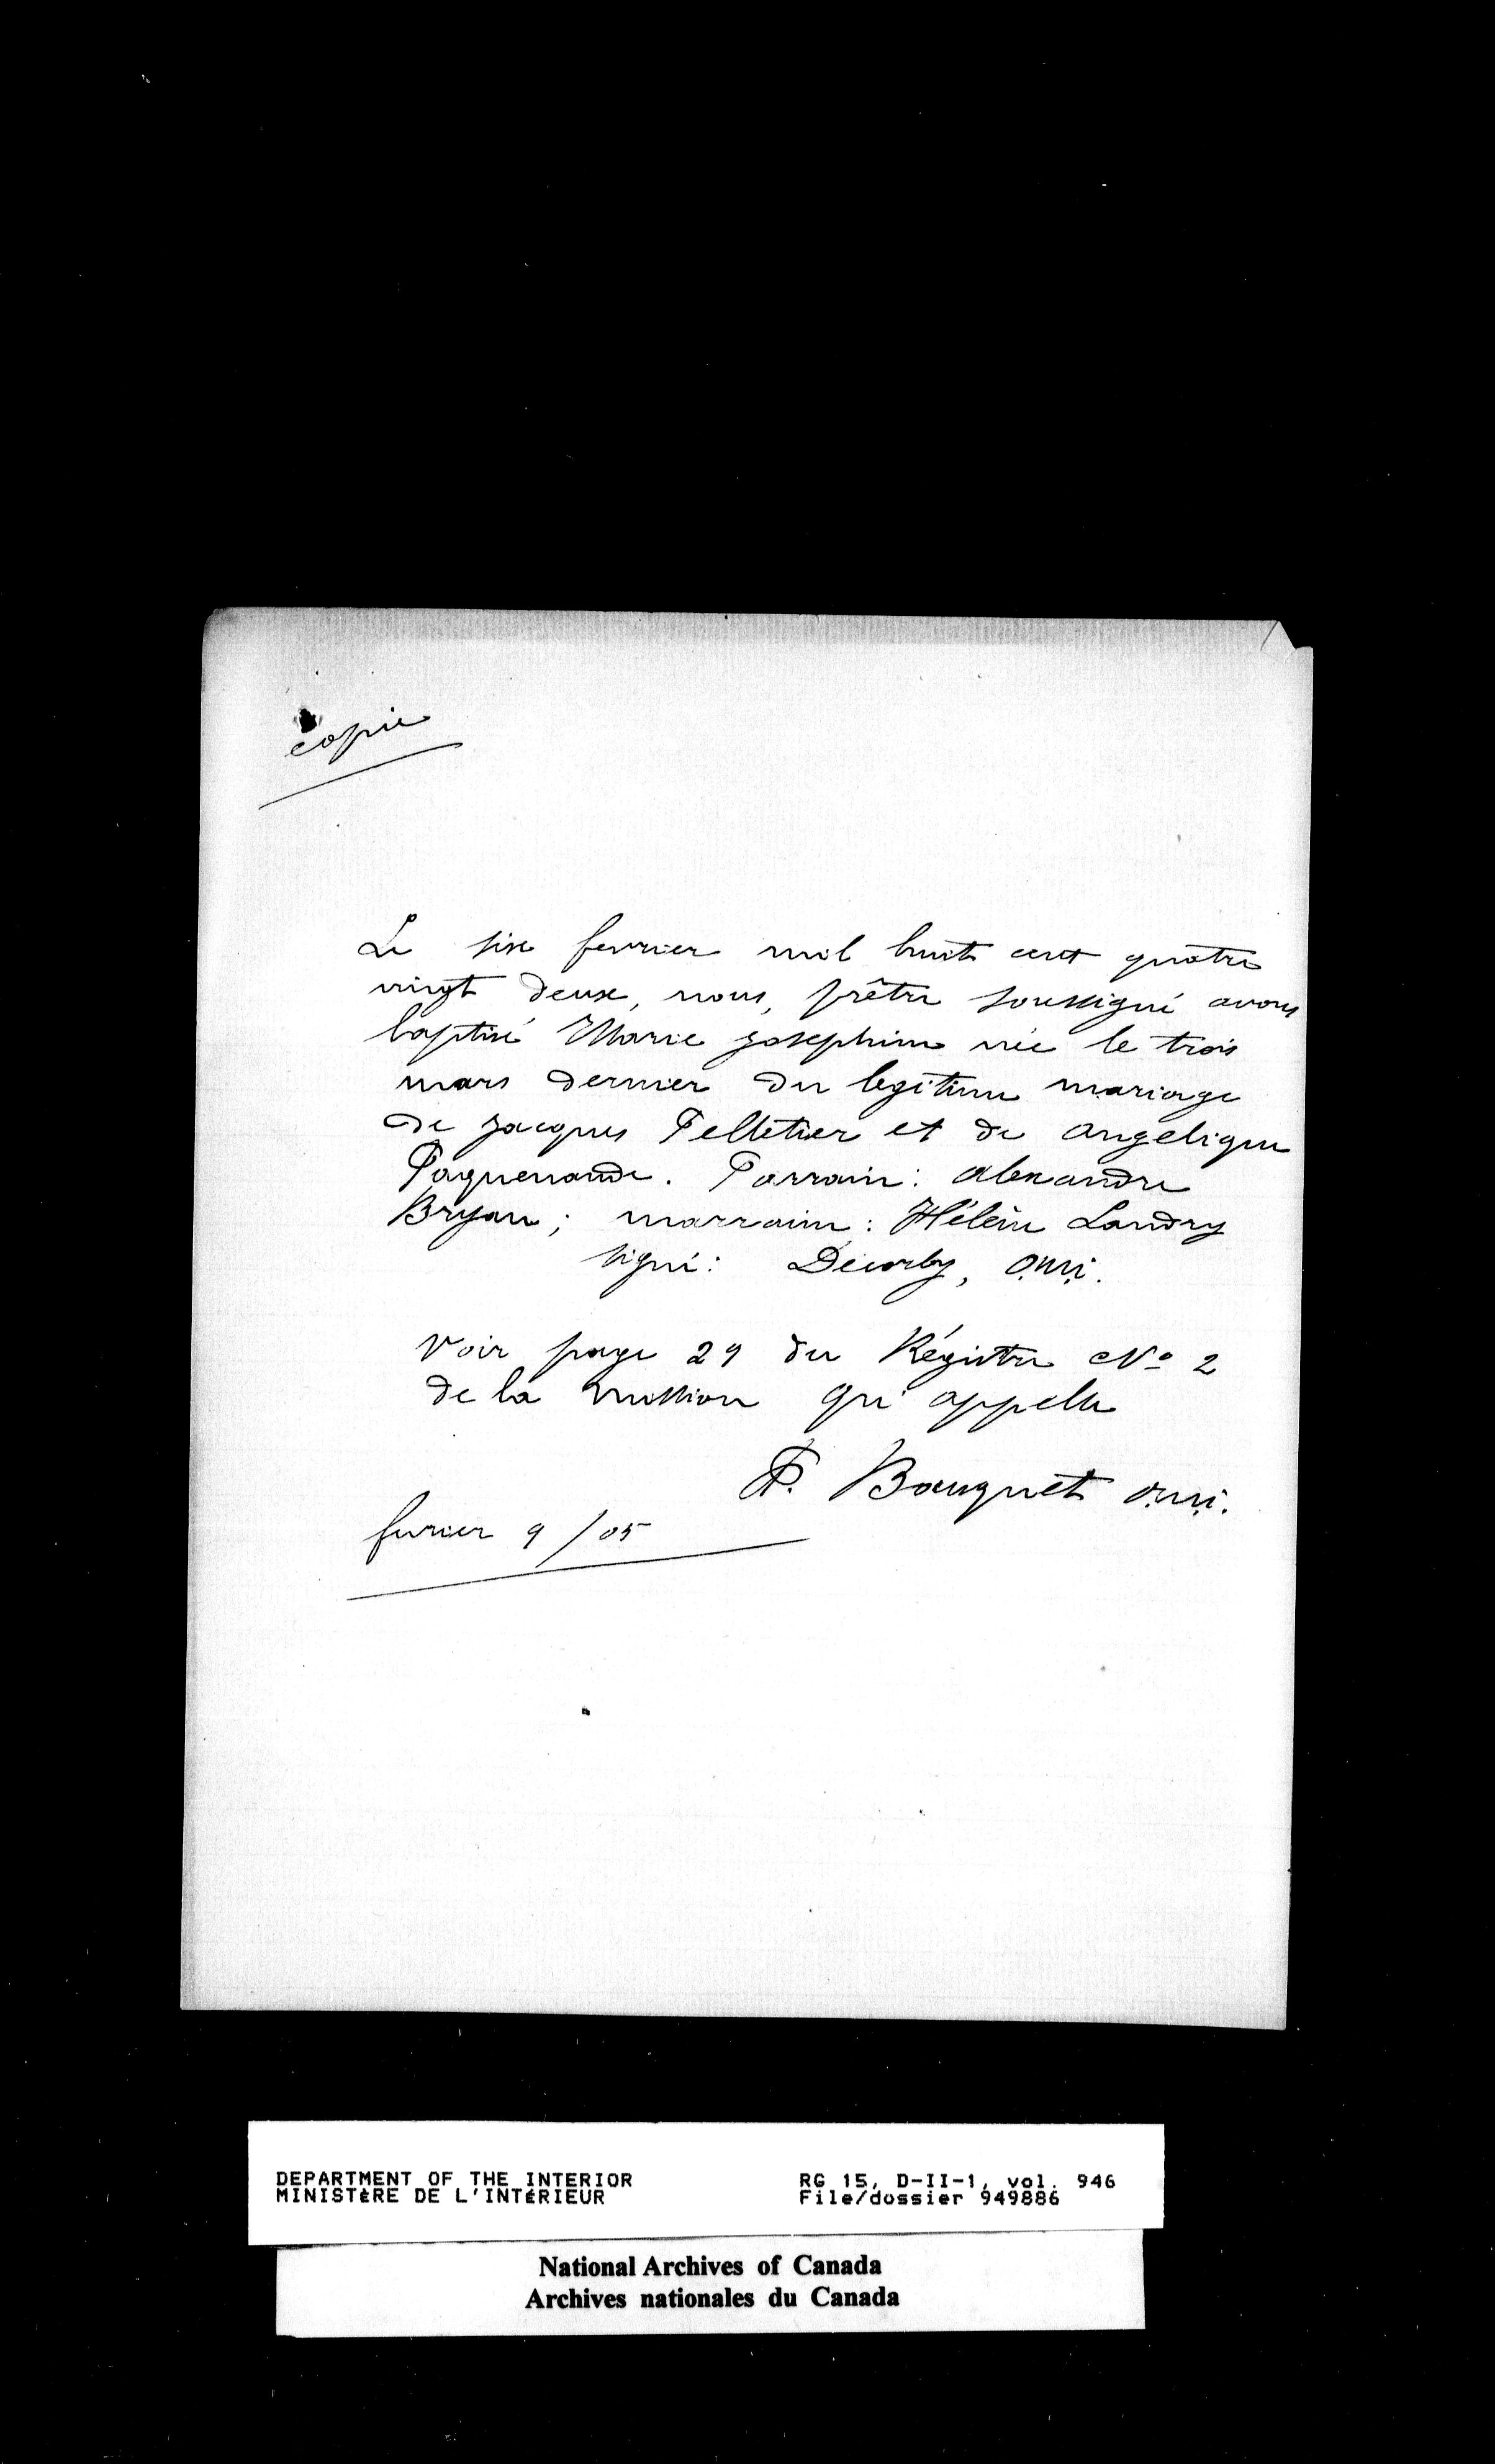 copie
Le six fevrier mil huit cent quatre
vingt deux, nous, prêtre soussigné avons
baptisé Marie Josephine née le trois
mars dernier du legitime mariage
de Jacques Pelletier et de Angelique
Paquenaude. Parrain: Alexandre
Bryan; marraine: Hélène Landry
signé: Décorby, O.M.I.
Voir page 29 du Régistre No 2
de la mission Qu'appelle
P. Bousquet O.M.I.
fevrier 9/05
DEPARTMENT OF THE INTERIOR RG 15, D-II-1, vol. 946
MINISTÈRE DE L'INTÉRIEUR File/dossier 949886
National Archives of Canada
Archives nationales du Canada